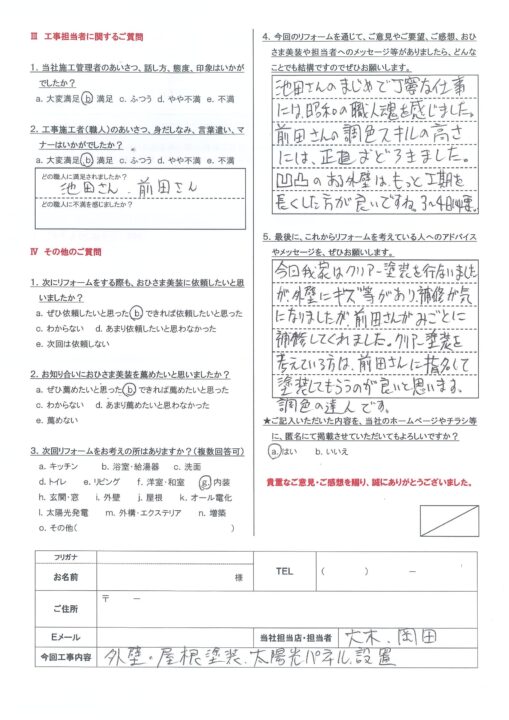 Ⅲ 工事担当者に関するご質問
1. 当社施工管理者のあいさつ、話し方、態度、印象はいかが
でしたか？
a. 大変満足 b. 満足 c. ふつう d. やや不満 e. 不満
2. 工事施工者（職人）のあいさつ、身だしなみ、言葉遣い、マ
ナーはいかがでしたか？
a. 大変満足 b. 満足 c. ふつう d. やや不満 e. 不満
どの職人に満足されましたか？
池田さん、前田さん
どの職人に不満を感じましたか？
Ⅳ その他のご質問
1. 次にリフォームをする際も、おひさま美装に依頼したいと思
いましたか？
a. ぜひ依頼したいと思った b. できれば依頼したいと思った
c. わからない d. あまり依頼したいと思わなかった
e. 次回は依頼しない
2. お知り合いにおひさま美装を薦めたいと思いましたか？
a. ぜひ薦めたいと思った b. できれば薦めたいと思った
c. わからない d. あまり薦めたいと思わなかった
e. 薦めない
3. 次回リフォームをお考えの所はありますか？（複数回答可）
a. キッチン b. 浴室・給湯器 c. 洗面
d. トイレ e. リビング f. 洋室・和室 g. 内装
h. 玄関・窓 i. 外壁 j. 屋根 k. オール電化
l. 太陽光発電 m. 外構・エクステリア n. 増築
o. その他（ ）
4. 今回のリフォームを通じて、ご意見やご要望、ご感想、おひ
さま美装や担当者へのメッセージ等がありましたら、どんな
ことでも結構ですのでぜひお願いします。
池田さんのまじめで丁寧な仕事
には、昭和の職人魂を感じました。
前田さんの調色スキルの高さ
には、正直おどろきました。
凹凸のある外壁は、もっと工期を
長くした方が良いですね。3〜4日必要。
5. 最後に、これからリフォームを考えている人へのアドバイス
やメッセージを、ぜひお願いします。
今回我家はクリアー塗装を行ないました
が、外壁にキズ等があり、補修が気
になりましたが、前田さんがみごとに
補修してくれました。クリアー塗装を
考えている方は、前田さんに指名して
塗装してもらうのが良いと思います。
調色の達人です。
★ご記入いただいた内容を、当社のホームページやチラシ等
に、匿名にて掲載させていただいてもよろしいですか？
a. はい b. いいえ
貴重なご意見・ご感想を賜り、誠にありがとうございました。
フリガナ
お名前 様 TEL （ ） －
ご住所 〒 －
Eメール 当社担当店・担当者 大木、岡田
今回工事内容 外壁・屋根塗装、太陽光パネル設置